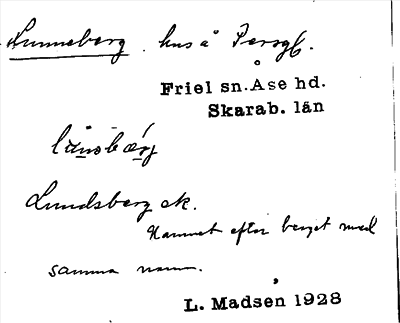 Lunneberg. hus å Persg.
Friel sn. Åse hd.
Skarab. län
lùnsbǽrg
Lundsberg ek.
Namnet efter berget med
samma namn.
L. Madsen 1928